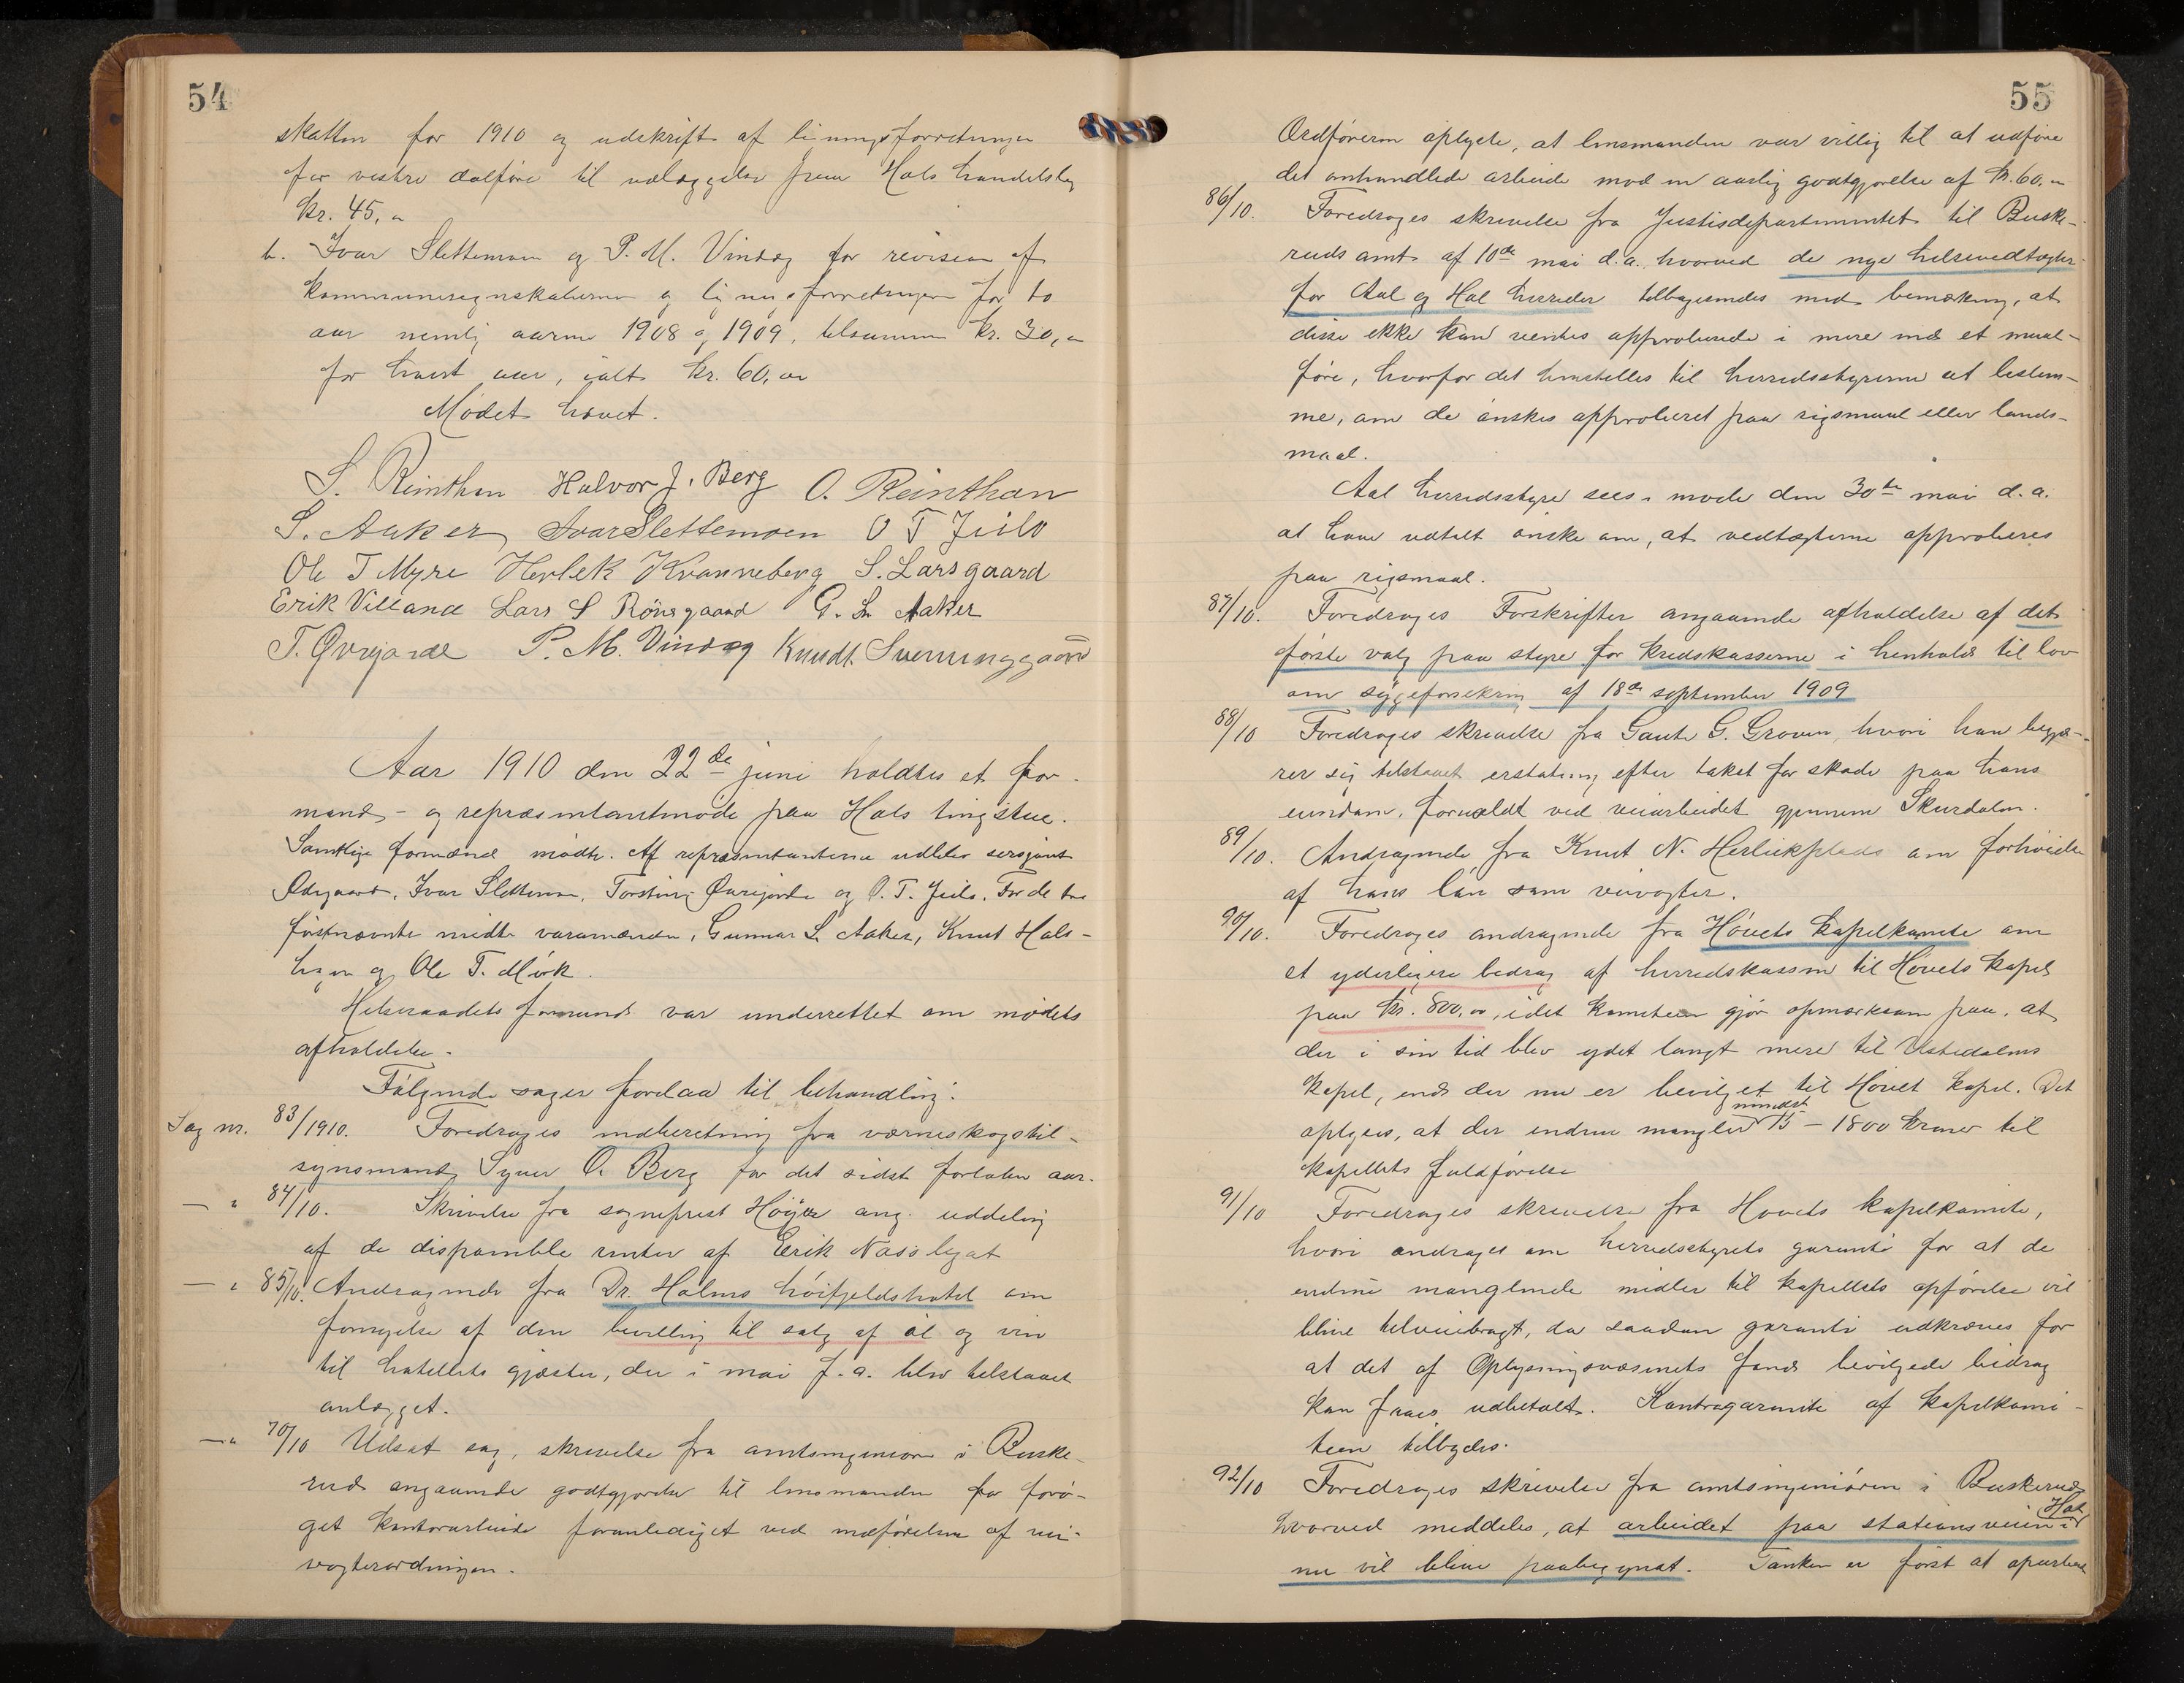 54
skatten for 1910 og udskrift af ligningsforretningen
for vestre dalføre til udlæggelse paa Hols handelslag
kr. 45,00
b. Ivar Slettemoen og P. M. Vindeg for revision af
kommuneregnskaberne og ligningsforretningen for to
aar nemlig aarene 1908 og 1909, tilsammen kr. 30,00
for hvert aar, ialt kr. 60,00
Mødet hævet.
S. Reinthon Halvor J. Berg O. Reinthon
S. Aaker Ivar Slettemoen O T Jeilo
Ole T Myre Herlek Kvanneberg S. Larsgaard
Erik Villand Lars S Rønsgaard G. L. Aaker
T. Øvrejorde P. M. Vindeg Knudt Sverunggaard
Aar 1910 den 22de juni holdtes et for-
mands- og repræsentantmøde paa Hols tingstue.
Samtlige formænd mødte. Af repræsentanterne udblev sersjant
Ødegaard, Ivar Slettemoen, Torstein Øvrejorde og O. T. Jeilo. For de tre
førstnævnte mødte varamænden, Gunnar L. Aaker, Knut Hols-
hagen og Ole T. Mørk.
Helseraadets formand var underrettet om mødets
afholdelse.
Følgende sager forelaa til behandling:
Sag nr. 83/1910. Foredroges indberetning fra værneskogstil-
synsmand Syver O. Berg for det sidst forløbne aar.
— " 84/10. Skrivelse fra sogneprest Høyer ang. uddeling
af de disponible renter af Eerik Næss legat
— " 85/10. Andragende fra Dr. Holms høifjeldshotel om
fornyelse af den bevilling til salg af øl og vin
til hotellets gjæster, der i mai f. a. blev tilstaaet
anlægget.
— " 70/10 Udsat sag, skrivelse fra amtsingeniøren i Buske-
rud angaaende godtgjørelse til lensmanden for forø-
get kontorarbeide foranlediget ved indførelsen af vei-
vogterordningen.
55
Ordføreren oplyste, at lensmanden var villig til at udføre
det omhandlede arbeide mod en aarlig godtgjørelse af kr. 60,00
86/10. Foredroges skrivelse fra Justisdepartementet til Buske-
ruds amt af 10de mai d.a. hvorved de nye helsevedtægter
for Aal og Hol herreder tilbagesendes med bemærkning, at
disse ikke kan ventes approberede i mere end et maal-
føre, hvorfor det henstilles til herredsstyrerne at bestem-
me, om de ønskes approberet paa rigsmaal eller lands-
maal.
Aal herredsstyre sees i møde den 30te mai d.a.
at have udtalt ønske om, at vedtægterne approberes
paa rigsmaal.
87/10. Foredroges Forskrifter angaaende afholdelse af det
første valg paa styre for kredskasserne i henhold til lov
om sygeforsikring af 18de september 1909
88/10 Foredroges skrivelse fra Gaute G. Groven, hvori han begjæ-
rer sig tilstaaet erstatning efter takst for skade paa hans
eiendom, forvoldt ved veiarbeidet gjennem Skurdalen.
89/10. Andragende fra Knut N. Herleikplads om forhøielse
af hans løn som veivogter.
90/10. Foredroges andragende fra Høvets kapelkomite om
et yderligere bedrag af herredskassen til Høvets kapel
paa kr. 800,00, idet komiteen gjør opmærksom paa, at
der i sin tid blev ydet langt mere til Ustedalens
kapel, end der nu er bevilget til Høvet kapel. Det
oplyses, at der endnu mangler mindst 15 – 1800 kroner til
kapellets fuldførelse
91/10 Foredroges skrivelse fra Hovets kapelkomite,
hvori andrages om herredsstyrets garanti for at de
endnu manglende midler til kapellets opførelse vil
blive tilveiebragt, da saadan garanti udkræves for
at det af Oplysningsvæsenets fond bevilgede bidrag
kan faaes udbetalt. Kontragarantie af kapelkomi-
teen tilbydes.
92/10 Foredroges skrivelse fra amtsingeniøren i Buskerud,
hvorved meddeles, at arbeidet paa stationsveien i Hol
nu vil blive paabegyndt. Tanken er først at oparbeide